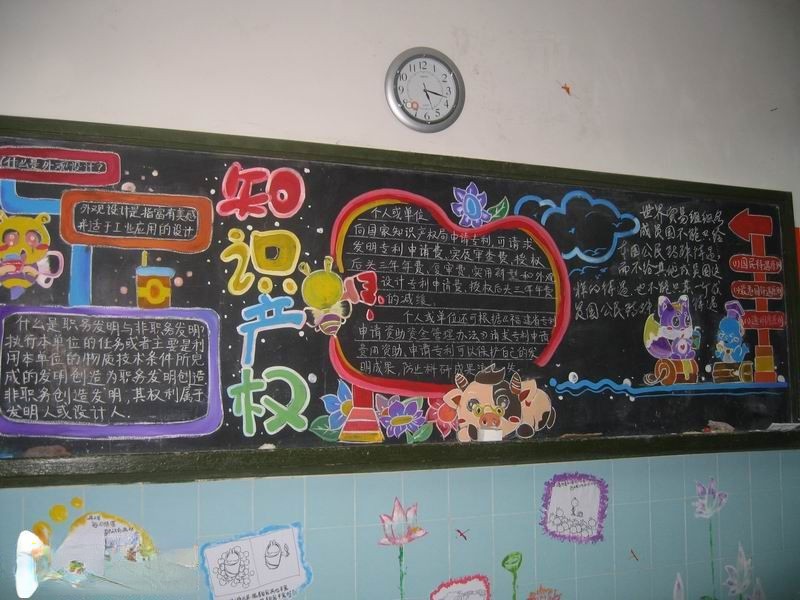 什么是外观设计?
外观设计是指富有美感
并适于工业应用的设计
什么是职务发明与非职务发明?
执行本单位的任务或者主要是利
用本单位的物质技术条件所完
成的发明创造为职务发明创造
非职务创造发明,其权利属于
发明人或设计人.
知识产权
个人或单位
向国家知识产权局申请专利,可请求
发明专利申请费,实质审查费,授权
后头三年年费,复审费,实用新型和外观
设计专利申请费,授权后头三年年费
的减缓.
个人或单位还可根据《福建省专利
申请资助资金管理办法》请求专利申请
费用资助.申请专利可以保护自己的发
明成果,防止科研成果流失
世界贸易组织的
成员国不能只给
本国公民特殊待遇
而不给其他成员国这
样的待遇.也不能只某一个
成员国公民特殊 待遇
(1)国民待遇原则
(2)最惠国待遇原则